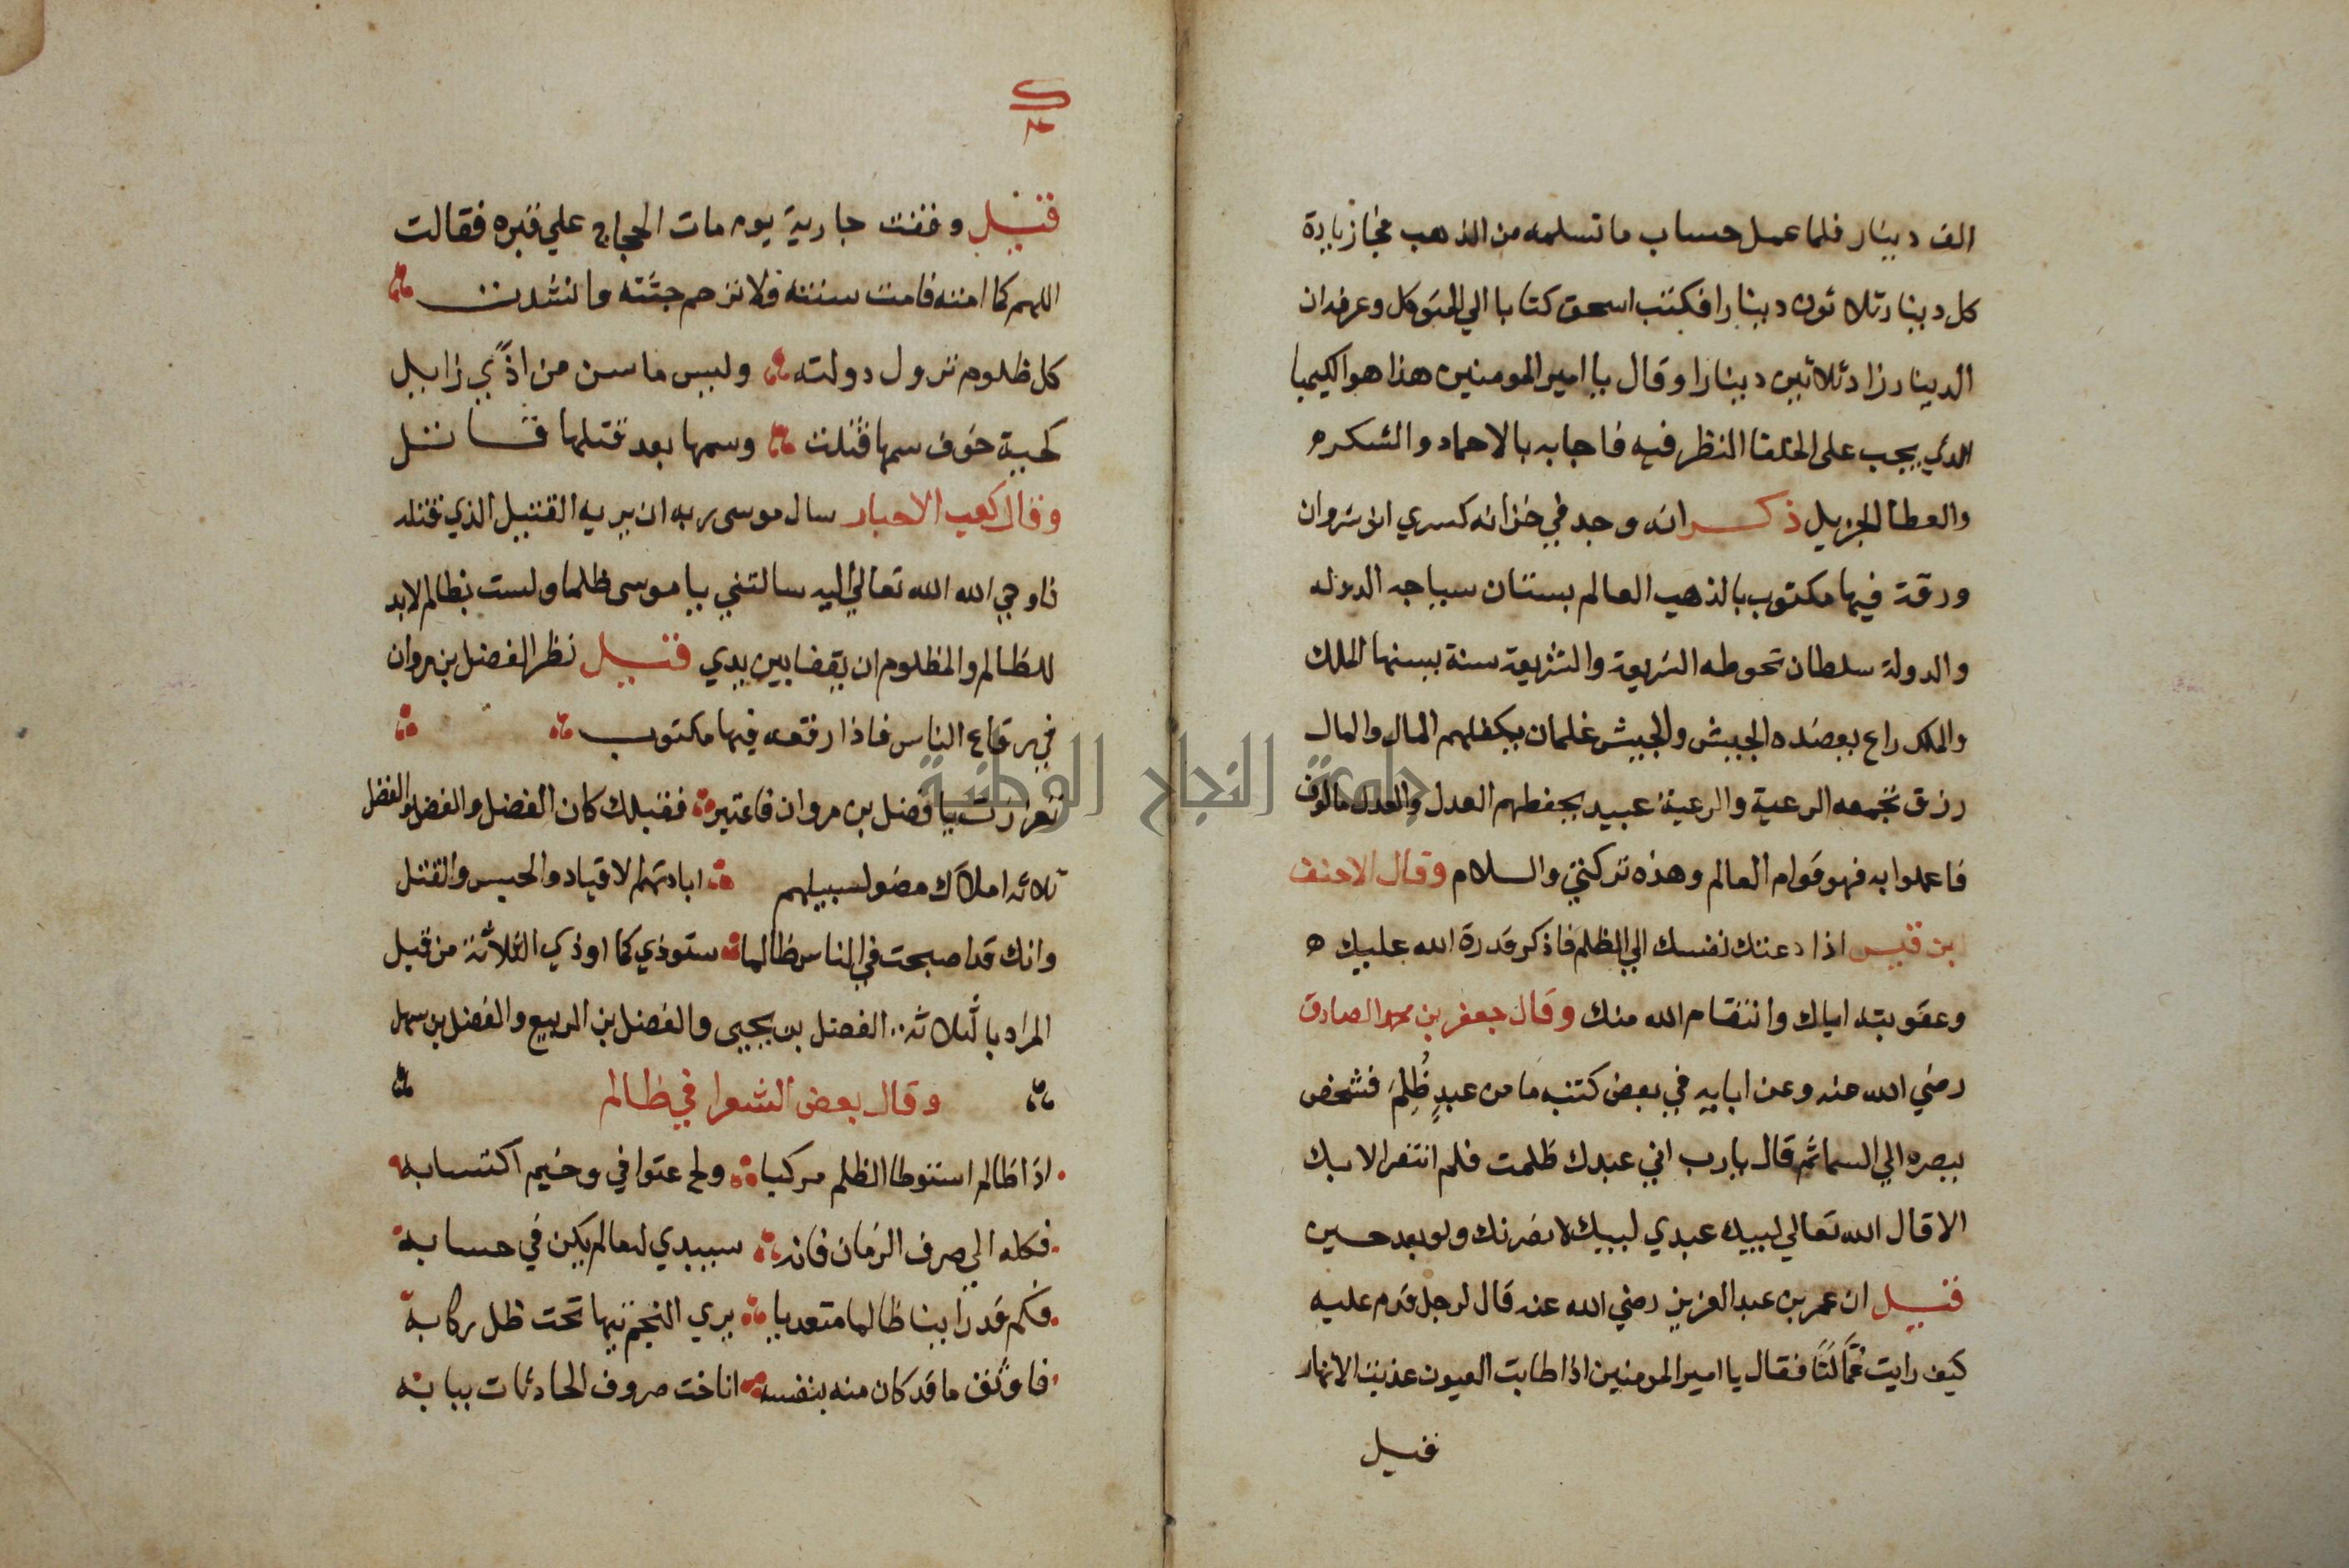 الف دينار فلما عمل حساب ما تسلمه من الذهب فجاز زيادة
كل دينار ثلاثون دينارا فكتب اسحق كتابا الي المتوكل وعرفه ان
الدينار زاد ثلاثين دينارا وقال يا امير المومنين هذا هو الكيميا
الذي يجب على الخلفا النظر فيه فاجابه بالاحماد والشكر ه
والعطا الجزيل ذكر انه وجد في خزانه كسري انوشروان
ورقة فيها مكتوب بالذهب العالم بستان سياجه الدوله
والدولة سلطان تحوطه الشريعة والشريعة سنة يسنها الملك
والملك راع يعضده الجيش والجيش غلمان يكفلهم المال والمال
رزق تجمعه الرعية والرعية عبيد يحفظهم العدل والعدل مالوف
فاعملوا به فهو قوام العالم وهذه تركتي والسلام وقال الاحنف
بن قيس اذا دعتك نفسك الي الظلم فاذكر قدرة الله عليك ه
وعقوبته اياك وانتقام الله منك وقال جعفر بن محمد الصادق
رضي الله عنه وعن ابايه في بعض كتبه ما من عبدٍ ظُلِمَ فشخص
ببصره الي السما ثم قال يارب اني عبدك ظلمت فلم انتصر الا بك
الا قال الله تعالي لبيك عبدي لبيك لانصرنك ولو بعد حسين
قيل ان عمر بن عبد العزيز رضي الله عنه قال لرجل قدم عليه
كيف رايت عُمَّالَنَا فقال يا امير المومنين اذا طابت العيون عذبت الانهار
قيل
قيل وقفت جارية يوم مات الحجاج علي قبره فقالت
اللهم كما امته فامت سنته فلا ترحم جثته وانشدت
كل ظلوم تزول دولته وليس ما سن من اذًي زايل
كحية خوف سمها قتلت وسمها بعد قتلها قاتل
وقال كعب الاحبار سال موسى ربه ان يريه القتيل الذي قتله
فاوحي الله الله تعالي اليه سالتني يا موسى ظلما ولست بظالم لابد
للظالم والمظلوم ان يقضا بين يدي قيل نظر الفضل بن مروان
في رقاع الناس فاذا رقعه فيها مكتوب
تعززت يا فضل بن مروان فاعتبر فقبلك كان الفضل والفضل والفضل
ثلاثه املاك مضو لسبيلهم ابادتهم الاقياد والحبس والقتل
وانك قد اصبحت في الناس ظالما ستوذي كما اوذي الثلاثة من قبل
المراد بالثلاثه الفضل بن يحيى والفضل بن الربيع والفضل بن سهل
وقال بعض الشعرا في ظالم
اذا ظالم استوطا الظلم مركبا ولج عتوا في وخيم اكتسابه
فكله الي صرف الزمان فانه سيبدي له ما لم يكن في حسابه
فكم قد راينا ظالما متعديا يري النجم تيها تحت ظل ركابه
فاوثق ما قد كان منه بنفسه اناخت صروف الحادثات ببابه
جامعة النجاح الوطنية